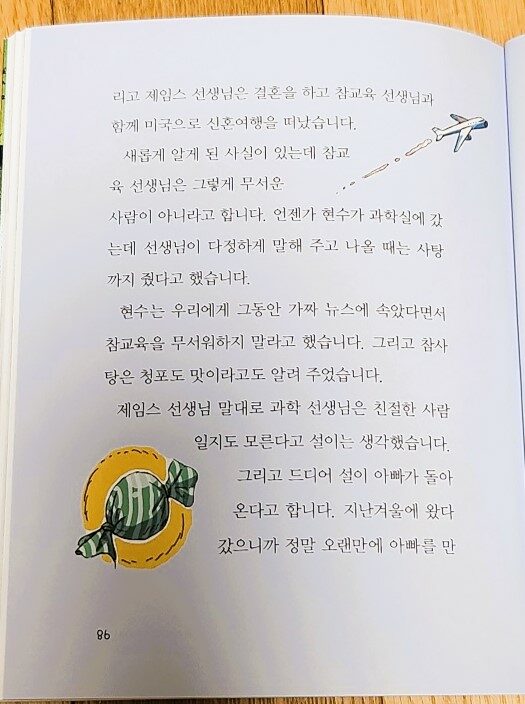 리고 제임스 선생님은 결혼을 하고 참교육 선생님과
함께 미국으로 신혼여행을 떠났습니다.
새롭게 알게 된 사실이 있는데 참교
육 선생님은 그렇게 무서운
사람이 아니라고 합니다. 언젠가 현수가 과학실에 갔
는데 선생님이 다정하게 말해 주고 나올 때는 사탕
까지 줬다고 했습니다.
현수는 우리에게 그동안 가짜 뉴스에 속았다면서
참교육을 무서워하지 말라고 했습니다. 그리고 참사
탕은 청포도 맛이라고도 알려 주었습니다.
제임스 선생님 말대로 과학 선생님은 친절한 사람
일지도 모른다고 설이는 생각했습니다.
그리고 드디어 설이 아빠가 돌아
온다고 합니다. 지난겨울에 왔다
갔으니까 정말 오랜만에 아빠를 만
86